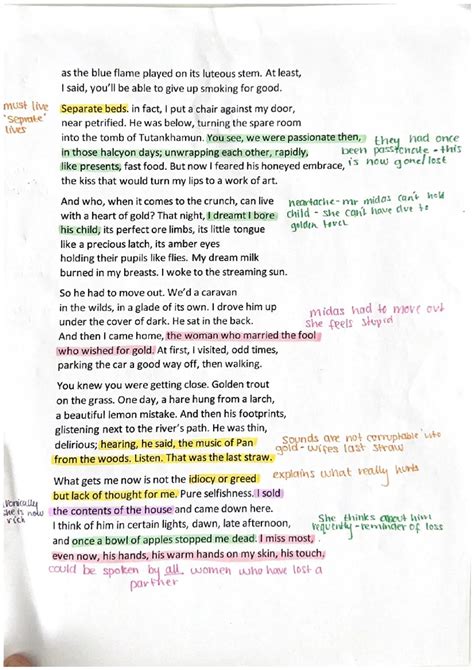 as the blue flame played on its luteous stem. At least,
I said, you'll be able to give up smoking for good.
must live
'Seprate'
lives
Separate beds. in fact, I put a chair against my door,
near petrified. He was below, turning the spare room
into the tomb of Tutankhamun. You see, we were passionate then,
in those halcyon days; unwrapping each other, rapidly,
like presents, fast food. But now I feared his honeyed embrace,
the kiss that would turn my lips to a work of art.
they had once
been passionate - this
is now gone/lost
And who, when it comes to the crunch, can live
with a heart of gold? That night, I dreamt I bore
his child, its perfect ore limbs, its little tongue
like a precious latch, its amber eyes
holding their pupils like flies. My dream milk
burned in my breasts. I woke to the streaming sun.
heartache - mr midas can't hold
child - she can't have due to
golden touch
So he had to move out. We'd a caravan
in the wilds, in a glade of its own. I drove him up
under the cover of dark. He sat in the back.
And then I came home, the woman who married the fool
who wished for gold. At first, I visited, odd times,
parking the car a good way off, then walking.
midas had to move out
She feels stupid
You knew you were getting close. Golden trout
on the grass. One day, a hare hung from a larch,
a beautiful lemon mistake. And then his footprints,
glistening next to the river's path. He was thin,
delirious; hearing, he said, the music of Pan
from the woods. Listen. That was the last straw.
Sounds are not corruptable into
gold - wifes last straw
What gets me now is not the idiocy or greed
but lack of thought for me. Pure selfishness. I sold
the contents of the house and came down here.
I think of him in certain lights, dawn, late afternoon,
and once a bowl of apples stopped me dead. I miss most,
even now, his hands, his warm hands on my skin, his touch.
explains what really hurts
Ironically
she is now
rich
She thinks about him
frequently - reminder of loss
could be spoken by all women who have lost a
partner